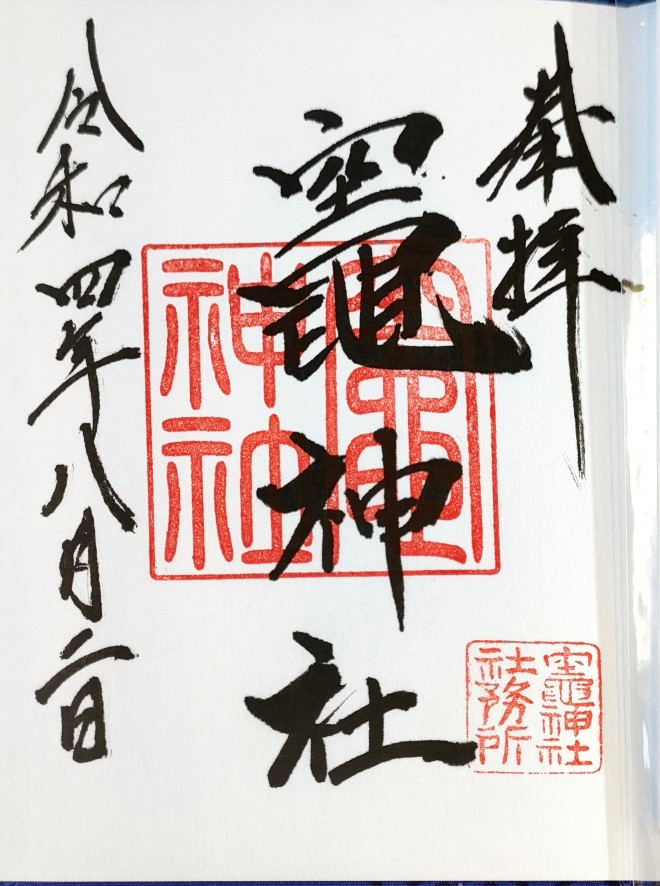 奉拝
竈神社
令和四年八月二日
竈神社
竈神社
社務所